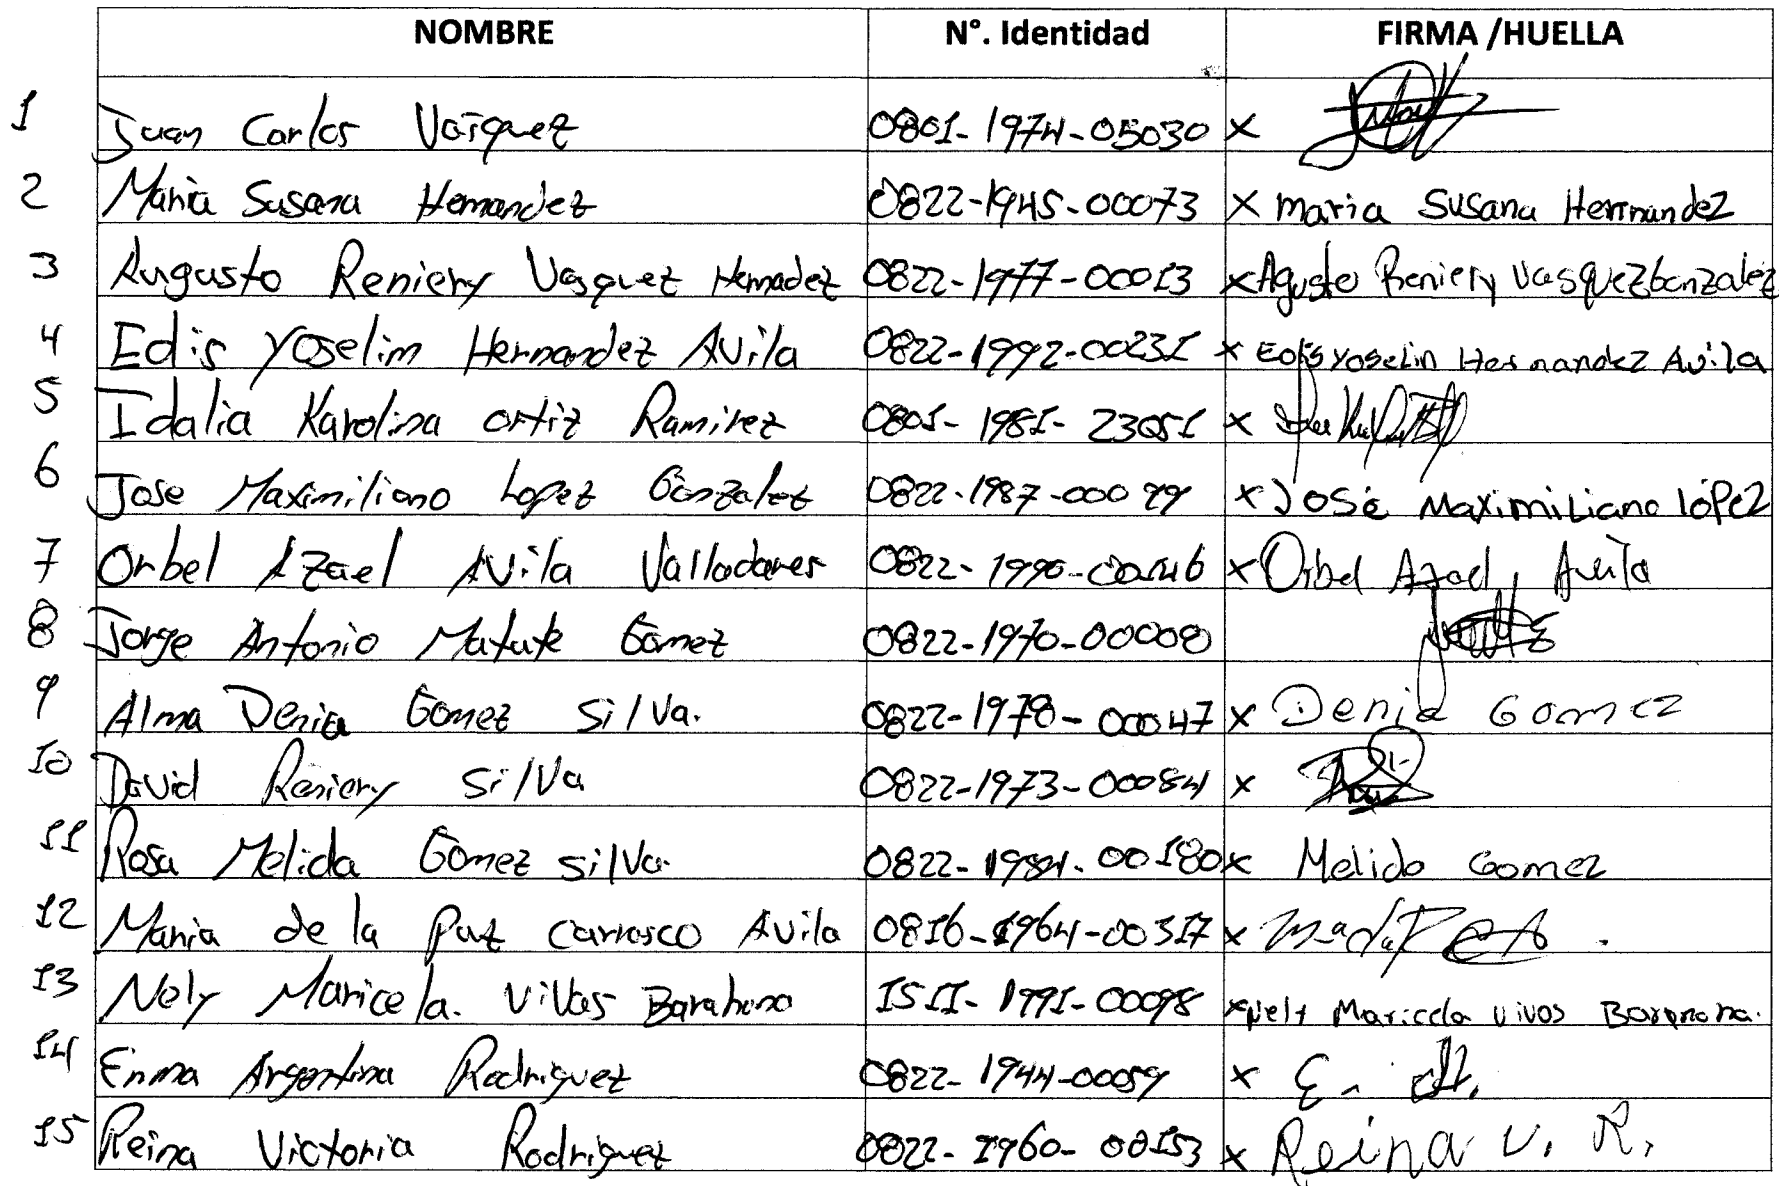 NOMBRE N°. Identidad FIRMA /HUELLA
1 Juan Carlos Vasquez 0801-1974-05030 X
2 Maria Susana Hernandez 0822-1945-00073 X maria Susana Hernnandez
3 Augusto Reniery Vasquez Hernadez 0822-1977-00013 X Agusto Reniery Vasquez Gonzalez
4 Edis Yoselim Hernandez Avila 0822-1992-00231 X Edis Yoselin Hernandez Avila
5 Idalia Karolina Ortiz Ramirez 0801-1981-23051 X
6 Jose Maximiliano Lopez Gonzalez 0822-1987-00099 X José Maximiliano lópez
7 Orbel Azael Avila Valladares 0822-1990- X Orbel Azael Avila
8 Jorge Antonio Matute Gomez 0822-1970-00008
9 Alma Denia Gomez Silva. 0822-1978-00047 X Denia Gomez
10 David Reniery Silva 0822-1973-00084 X
11 Rosa Melida Gomez Silva. 0822-1984-00180 X Melida Gomez
12 Maria de la Paz Carrasco Avila 0816-1964-00317 X
13 Nely Maricela. Vivas Barahona 1511-1991-00098 X Nely Maricela Vivas Barahona.
14 Enma Argentina Rodriguez 0822-1944-00059 X
15 Reina Victoria Rodriguez 0822-1960-00153 X Reina V. R.